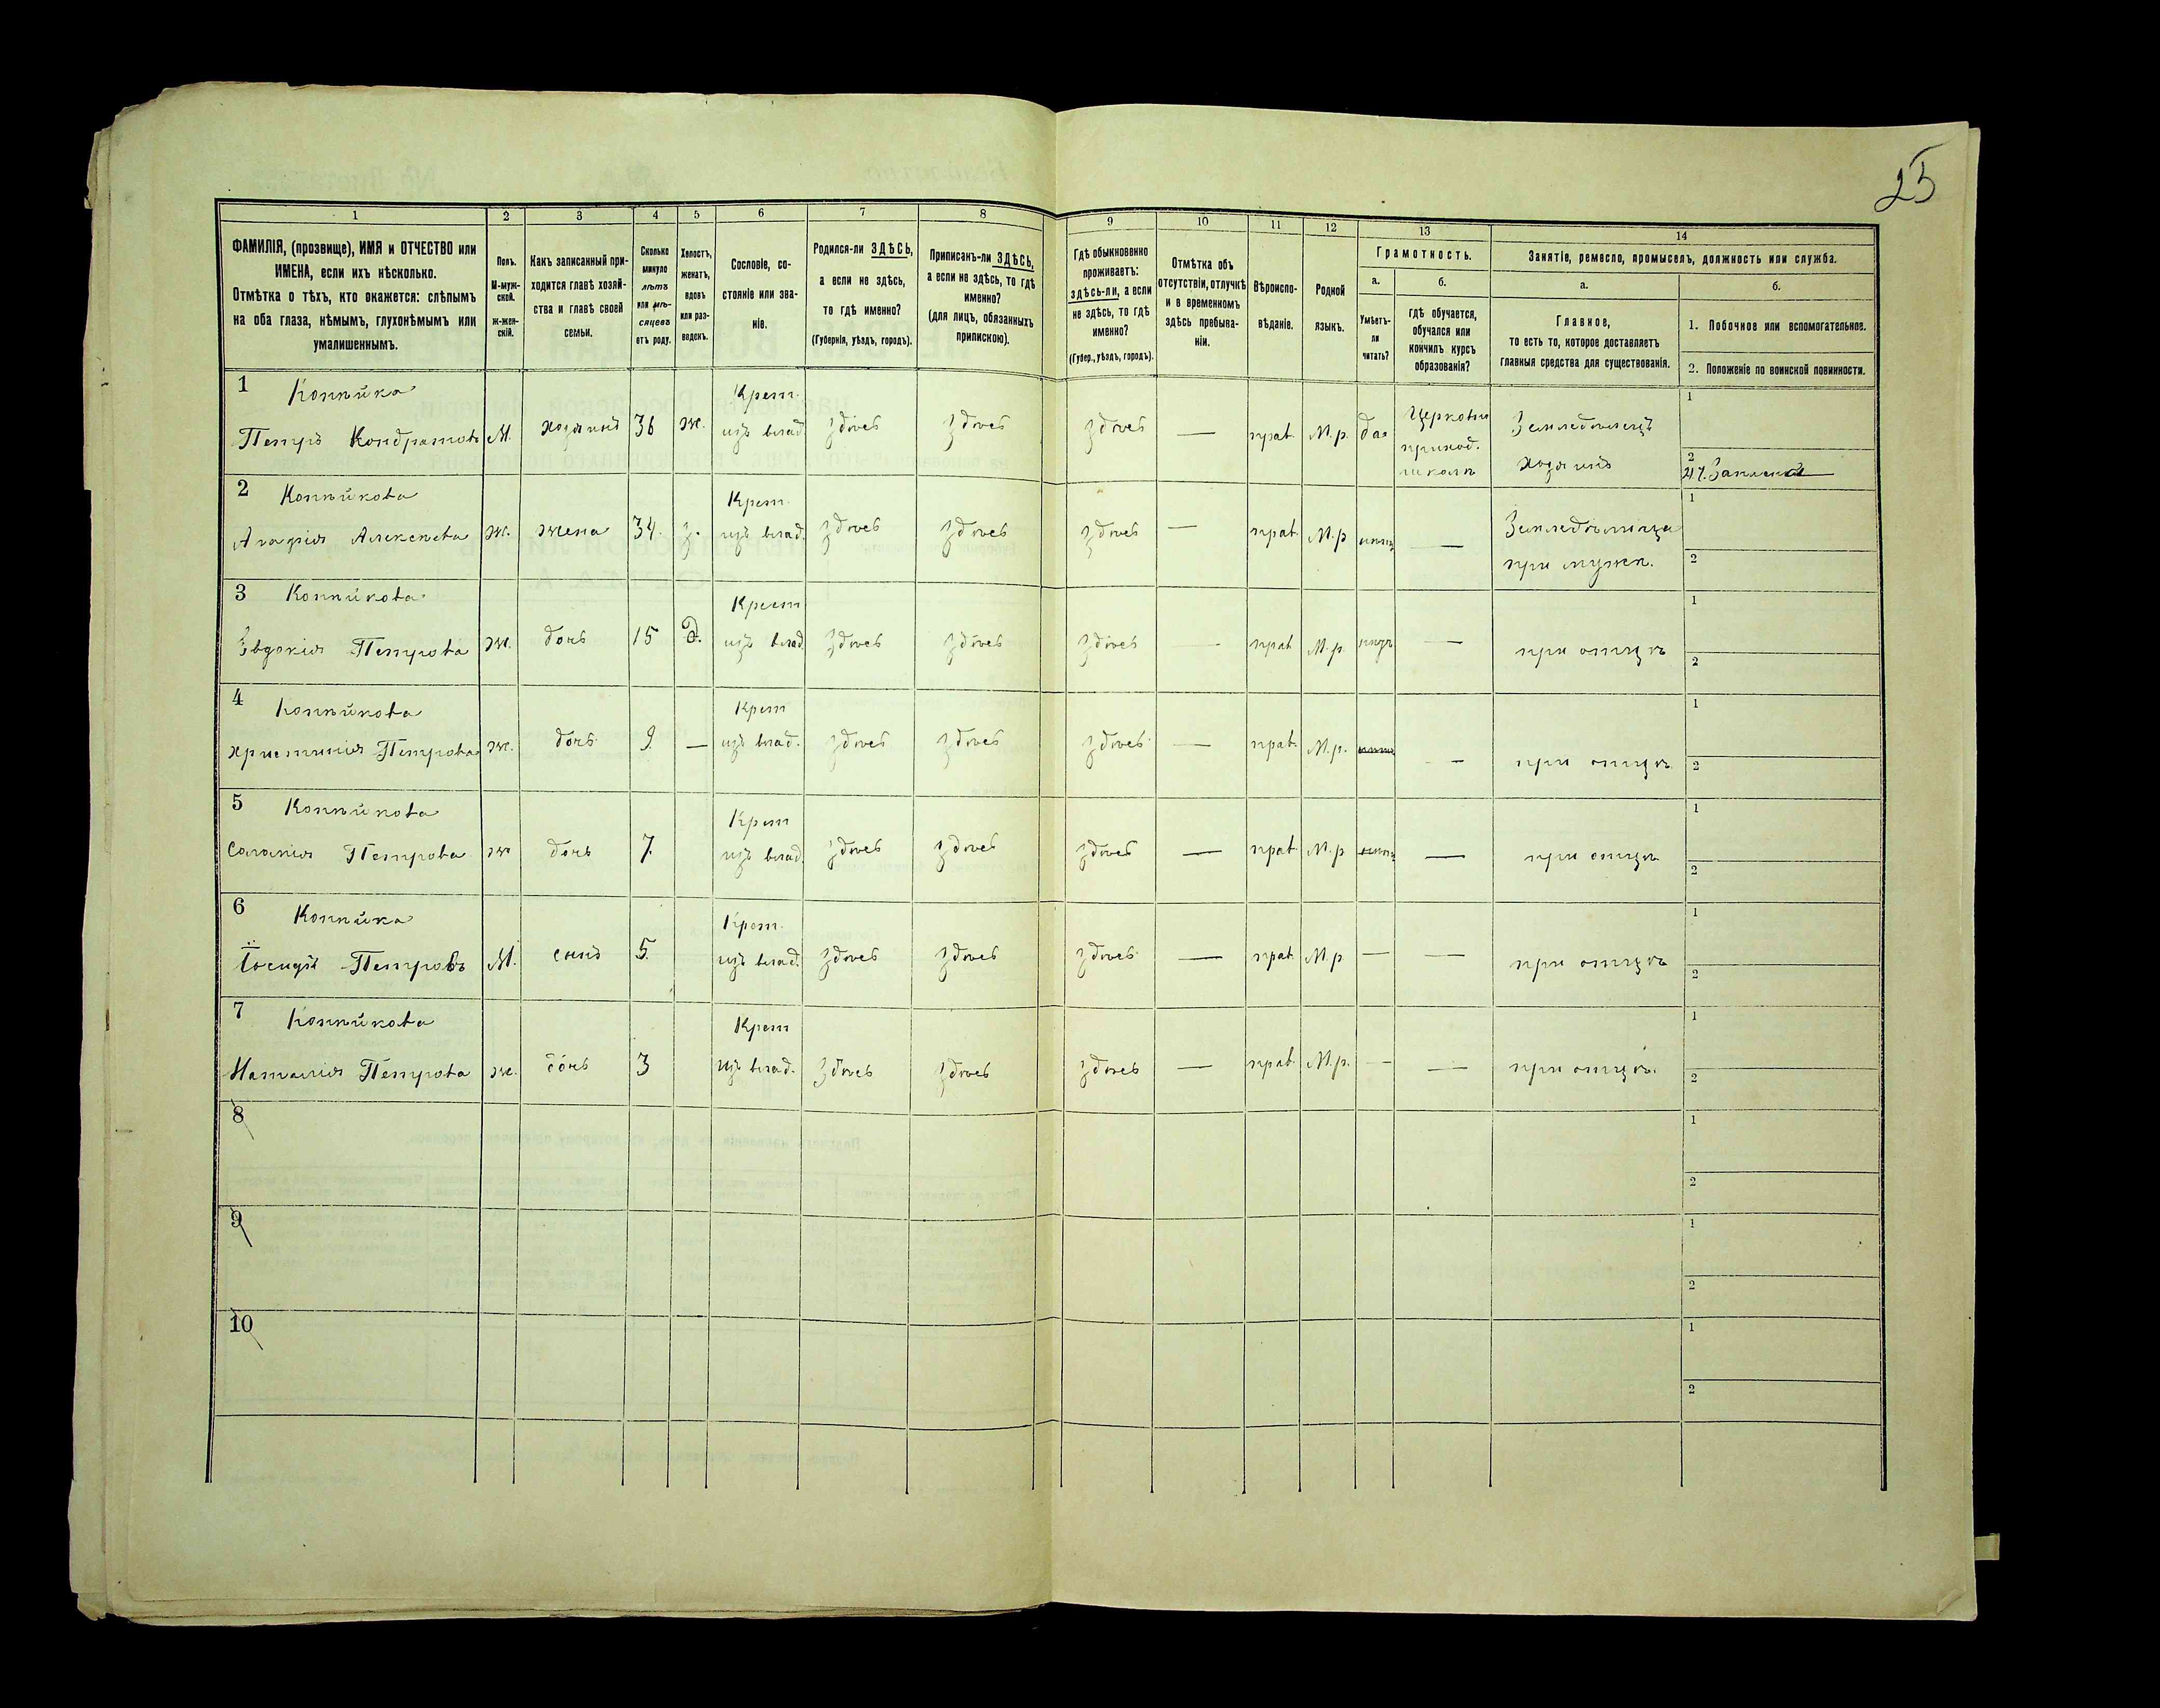 25
1 2 3 4 5 6 7 8 9 10 11 12 13 14
ФАМИЛІЯ, (прозвище), ИМЯ и ОТЧЕСТВО или
ИМЕНА, если ихъ нѣсколько.
Отмѣтка о тѣхъ, кто окажется: слѣпымъ
на оба глаза, нѣмымъ, глухонѣмымъ или
умалишеннымъ.
Полъ.
М-муж-
ской.
ж-жен-
скій.
Какъ записанный при-
ходится главѣ хозяй-
ства и главѣ своей
семьи.
Сколько
минуло
лѣтъ
или мѣ-
сяцевъ
отъ роду.
Холостъ,
женатъ,
вдовъ
или раз-
веденъ.
Сословіе, со-
стояніе или зва-
ніе.
Родился-ли ЗДѢСЬ,
а если не здѣсь,
то гдѣ именно?
(Губернія, уѣздъ, городъ).
Приписанъ-ли ЗДѢСЬ,
а если не здѣсь, то гдѣ
именно?
(для лицъ, обязанныхъ
припискою).
Гдѣ обыкновенно
проживаетъ:
здѣсь-ли, а если
не здѣсь, то гдѣ
именно?
(Губер., уѣздъ, городъ).
Отмѣтка объ
отсутствіи, отлучкѣ
и о временномъ
здѣсь пребыва-
ніи.
Вѣроиспо-
вѣданіе.
Родной
языкъ.
Грамотность.
а.
Умѣетъ-
ли
читать?
б.
гдѣ обучается,
обучался или
кончилъ курсъ
образованія?
Занятіе, ремесло, промыселъ, должность или служба.
а.
Главное,
то есть то, которое доставляетъ
главныя средства для существованія.
б.
1. Побочное или вспомогательное.
2. Положеніе по воинской повинности.
1 Копѣйка Крест. Церковно 1
Петръ Кондратовъ М. хозяинъ 36 ж. изъ влад. здѣсь здѣсь здѣсь — прав. М.р. да приход. Земледѣлецъ
школѣ хозяинъ 2
2 Копѣйкова Крест. 1
Алексѣева ж. жена 34. з. изъ влад. здѣсь здѣсь здѣсь — прав. М.р — Земледѣлица
при мужѣ. 2
3 Копѣйкова Крест 1
Евдокія Петрова ж. дочь 15 д. изъ влад здѣсь здѣсь здѣсь — прав М.р. — при отцѣ 2
4 Копѣйкова Крест 1
Христинія Петрова ж. дочь 9 — изъ влад. здѣсь здѣсь здѣсь — прав. М.р. — при отцѣ 2
5 Копѣйкова Крест 1
Петрова ж дочь 7. изъ влад. здѣсь здѣсь здѣсь — прав. М.р — при отцѣ 2
6 Копѣйка Крест. 1
Іосифъ Петровъ М. сынъ 5. изъ влад. здѣсь здѣсь здѣсь — прав. М.р — — при отцѣ 2
7 Копѣйкова Крест 1
Наталія Петрова ж. дочь 3 изъ влад. здѣсь здѣсь здѣсь — прав. М.р. — — при отцѣ. 2
8 1
2
9 1
2
10 1
2